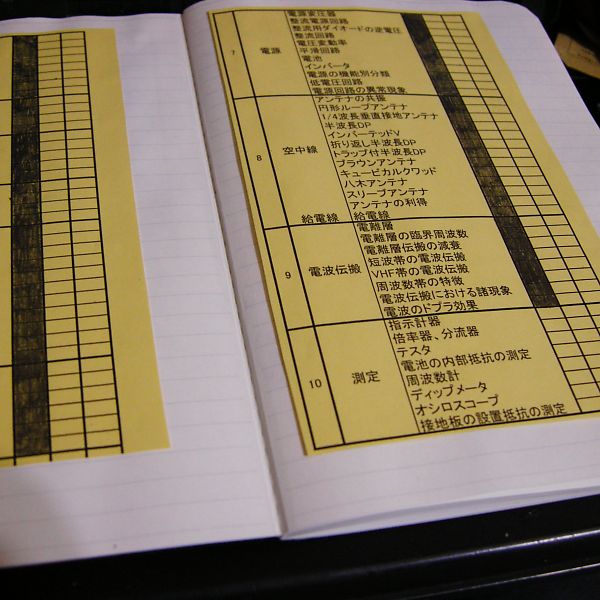 電源変圧器
整流電源回路
整流用ダイオードの逆電圧
整流回路
電圧変動率
7 電源 平滑回路
電池
インバータ
電源の機能別分類
低電圧回路
電源回路の異常現象
アンテナの共振
円形ループアンテナ
1/4波長垂直接地アンテナ
半波長DP
インバーテッドV
8 空中線 折り返し半波長DP
トラップ付半波長DP
ブラウンアンテナ
キュービカルクワッド
八木アンテナ
スリーブアンテナ
アンテナの利得
給電線 給電線
電離層
電離層の臨界周波数
電離層伝搬の減衰
短波帯の電波伝搬
9 電波伝搬 VHF帯の電波伝搬
周波数帯の特徴
電波伝搬における諸現象
電波のドプラ効果
指示計器
倍率器、分流器
テスタ
電池の内部抵抗の測定
10 測定 周波数計
ディップメータ
オシロスコープ
接地板の設置抵抗の測定